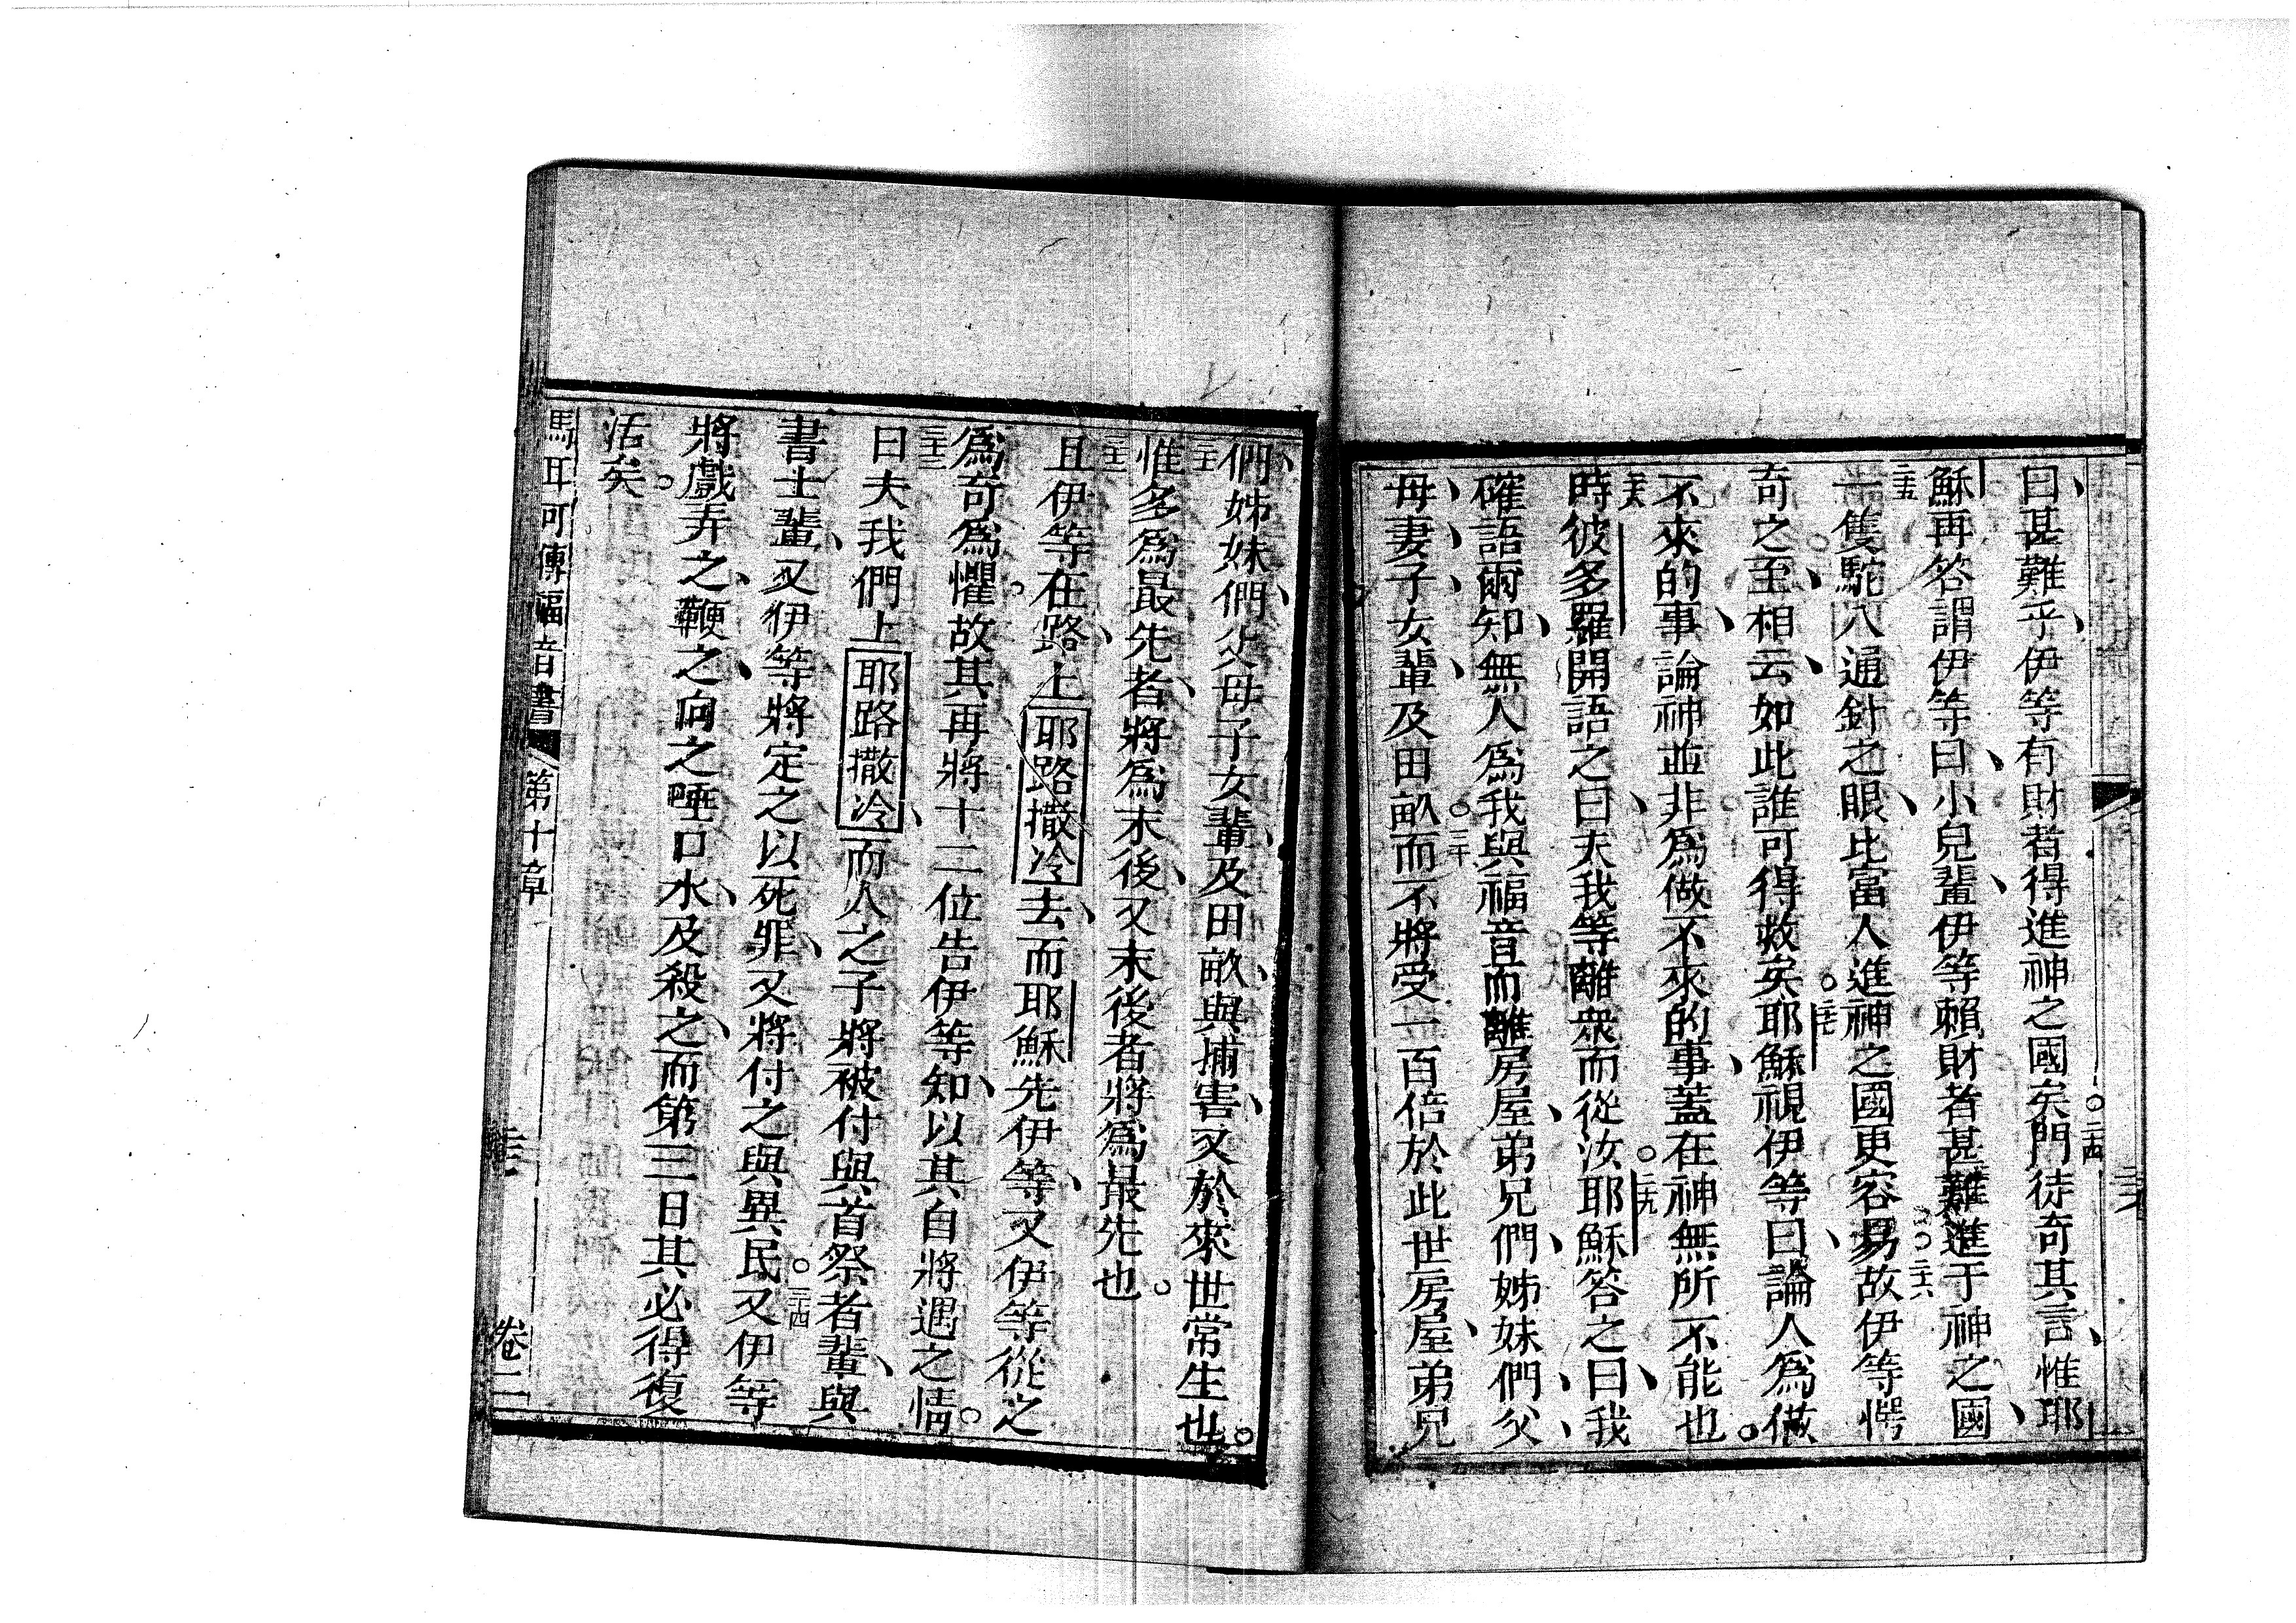 曰、甚難乎、伊等有財者得進神之國矣。二四門徒奇其言、惟耶
穌再答謂伊等曰、小兒輩、伊等賴財者甚難進于神之國、
二五一隻駝穴通針之眼、比富人進神之國更容易。二六故伊等愕
奇之至、相云、如此誰可得救矣。二七耶穌視伊等曰、論人爲做
不來的事、論神並非爲做不來的事、蓋在神無所不能也。
二八時彼多羅開語之曰、夫我等離衆而從汝。二九耶穌答之曰、我
確語爾知、無人爲我與福音而離房屋、弟兄們、姊妹們、父、
母、妻、子女輩、及田畝。三十而不將受一百倍於此世房屋、弟兄
們、姊妹們、父母子女輩、及田畝、與捕害、又於來世常生也。
三一惟多爲最先者、將爲末後、又末後者將爲最先也。
三二且伊等在路、上耶路撒冷去、而耶穌先伊等、又伊等從之
爲奇爲懼。故其再將十二位告伊等知、以其自將遇之情。
三三曰夫我們上耶路撒冷、而人之子將被付與首祭者輩、與
書士輩、又伊等將定之以死罪、又將付之與異民。三四又伊等
將戲弄之、鞭之、向之唾口水、及殺之、而第三日其必得復
活矣。
馬耳可傳福音書 第十章 卷二